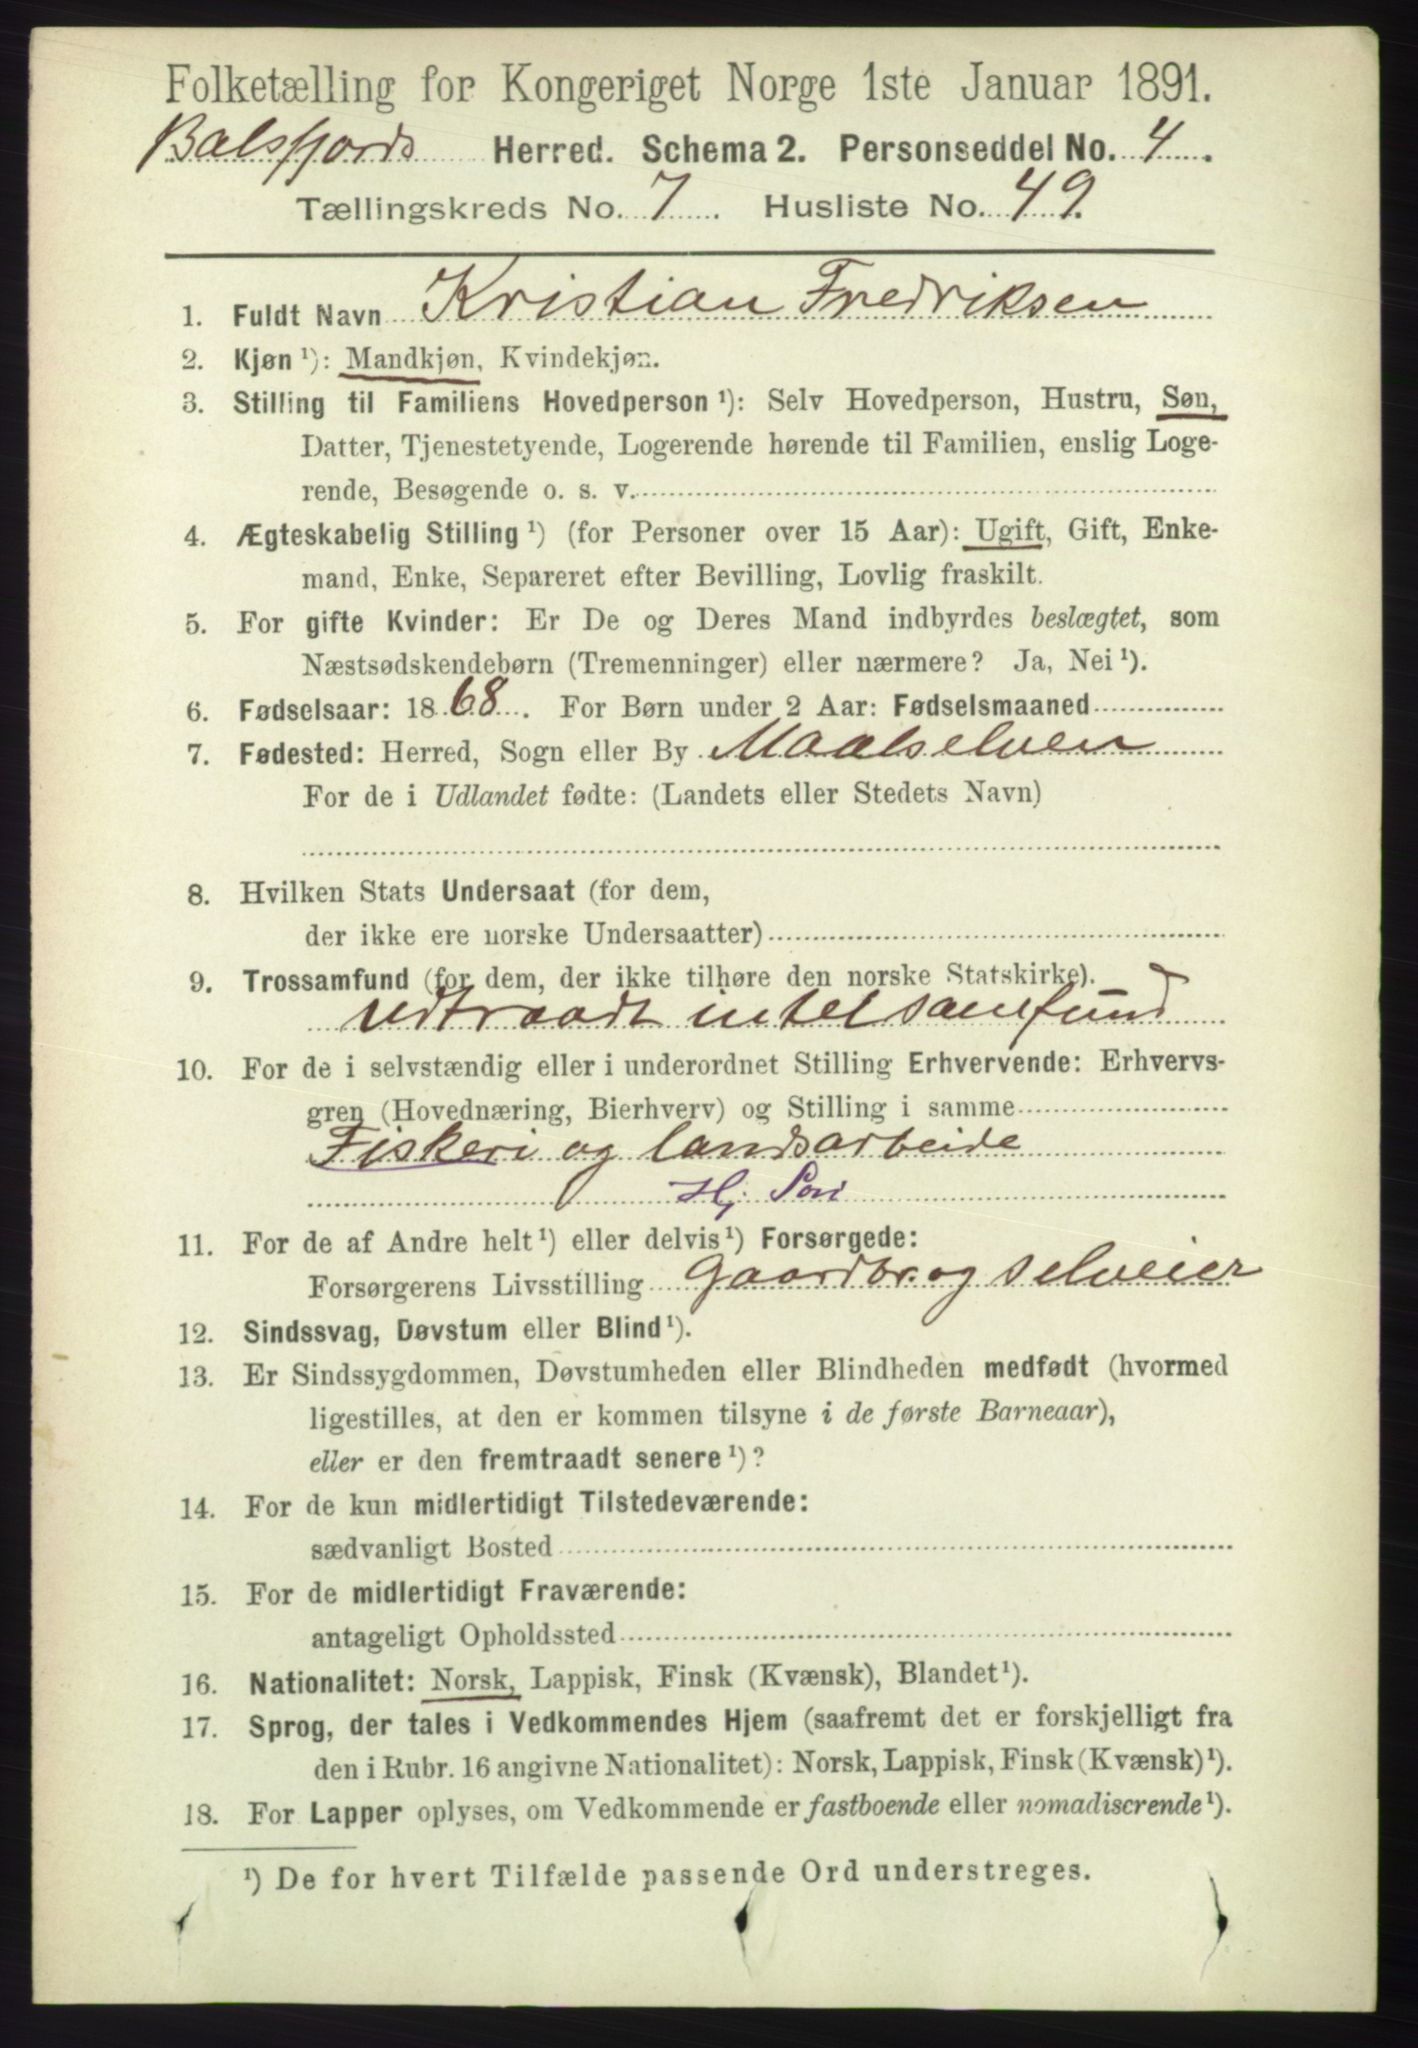 Folketælling for Kongeriget Norge 1ste Januar 1891.
Balsfjords Herred. Schema 2. Personseddel No. 4.
Tællingskreds No. 7. Husliste No. 49.
1. Fuldt Navn Kristian Fredriksen
2. Kjøn ¹): Mandkjøn, Kvindekjøn.
3. Stilling til Familiens Hovedperson ¹): Selv Hovedperson, Hustru, Søn,
Datter, Tjenestetyende, Logerende hørende til Familien, enslig Loge-
rende, Besøgende o. s. v.
4. Ægteskabelig Stilling ¹) (for Personer over 15 Aar): Ugift, Gift, Enke-
mand, Enke, Separeret efter Bevilling, Lovlig fraskilt.
5. For gifte Kvinder: Er De og Deres Mand indbyrdes beslægtet, som
Næstsødskendebørn (Tremenninger) eller nærmere? Ja, Nei ¹).
6. Fødselsaar: 1868. For Børn under 2 Aar: Fødselsmaaned
7. Fødested: Herred, Sogn eller By Maalselven
For de i Udlandet fødte: (Landets eller Stedets Navn)
8. Hvilken Stats Undersaat (for dem,
der ikke ere norske Undersaatter)
9. Trossamfund (for dem, der ikke tilhøre den norske Statskirke).
udtraadt intet samfund
10. For de i selvstændig eller i underordnet Stilling Erhvervende: Erhvervs-
gren (Hovednæring, Bierhverv) og Stilling i samme
Fiskeri og landsarbeide
Hj. Søn
11. For de af Andre helt ¹) eller delvis ¹) Forsørgede:
Forsørgerens Livsstilling Gaardbr. og selveier
12. Sindssvag, Døvstum eller Blind ¹).
13. Er Sindssygdommen, Døvstumheden eller Blindheden medfødt (hvormed
ligestilles, at den er kommen tilsyne i de første Barneaar),
eller er den fremtraadt senere ¹)?
14. For de kun midlertidigt Tilstedeværende:
sædvanligt Bosted
15. For de midlertidigt Fraværende:
antageligt Opholdssted
16. Nationalitet: Norsk, Lappisk, Finsk (Kvænsk), Blandet ¹).
17. Sprog, der tales i Vedkommendes Hjem (saafremt det er forskjelligt fra
den i Rubr. 16 angivne Nationalitet): Norsk, Lappisk, Finsk (Kvænsk) ¹).
18. For Lapper oplyses, om Vedkommende er fastboende eller nomadiserende ¹).
¹) De for hvert Tilfælde passende Ord understreges.